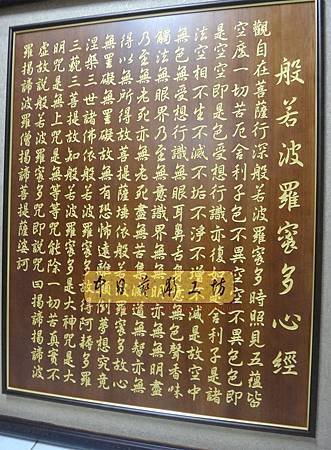 般若波羅蜜多心經
觀自在菩薩行深般若波羅蜜多時照見五蘊皆
空度一切苦厄舍利子色不異空空不異色色即
是空空即是色受想行識亦復如是舍利子是諸
法空相不生不滅不垢不淨不增減是故空中
無色無受想行識無眼耳鼻舌身無色聲香味
觸法無眼界乃至無意識界無無亦無無明盡
乃至無老死亦無老死盡無苦集道無智亦無
得以無所得故菩提薩埵依般波羅蜜多故心
無罣礙無罣礙故無有恐怖遠離倒夢想究竟
涅槃三世諸佛依般若波羅蜜多得阿耨多羅
三藐三菩提故知般若波羅蜜多是大神咒是大
明咒是無上咒是無等等咒能除一切苦真實不
虛故說般若波羅蜜多咒即說咒曰揭諦揭諦波
羅揭諦波羅僧揭諦菩提薩婆訶
中日工坊